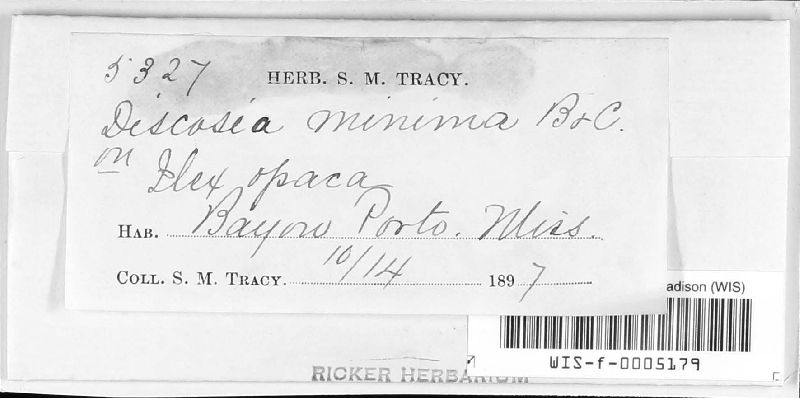 5327 HERB. S. M. TRACY.
Discosia minima B&C.
on Ilex opaca
HAB. Bayou Porto. Miss.
COLL. S. M. TRACY. 10/14 1897
adison (WIS)
WIS-f-0005179
RICKER HERBARIUM